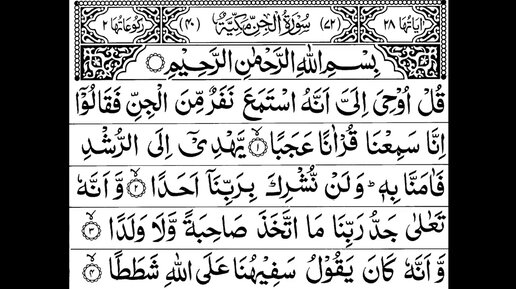 اٰيَاتُهَا ٢٨ (٧٢) سُوْرَةُ الْجِنِّ مَكِّيَّةٌ (٤٠) رُكُوْعَاتُهَا ٢
بِسْمِ اللّٰهِ الرَّحْمٰنِ الرَّحِيْمِ
قُلْ اُوْحِیَ اِلَیَّ اَنَّهُ اسْتَمَعَ نَفَرٌ مِّنَ الْجِنِّ فَقَالُوْۤا
اِنَّا سَمِعْنَا قُرْاٰنًا عَجَبًا ۙ۝١ يَّهْدِیْۤ اِلَی الرُّشْدِ
فَاٰمَنَّا بِهٖ ؕ وَلَنْ نُّشْرِكَ بِرَبِّنَاۤ اَحَدًا ۙ۝٢ وَّ اَنَّهٗ
تَعٰلٰی جَدُّ رَبِّنَا مَا اتَّخَذَ صَاحِبَةً وَّلَا وَلَدًا ۙ۝٣
وَّ اَنَّهٗ كَانَ يَقُوْلُ سَفِيْهُنَا عَلَی اللّٰهِ شَطَطًا ۙ۝٤